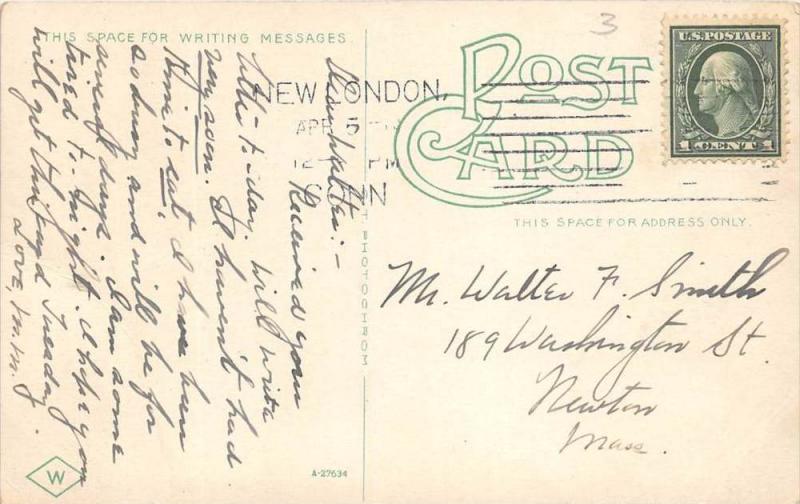 THIS SPACE FOR WRITING MESSAGES
Dear Walter:-
Received your
letter to-day. Will write
very soon. I haven't had
time to eat, I have been
so busy and will be for
several days. I am some
tired to-night. I hope you
will get this by Tuesday
Love, M.M.J.
W
A-27634
3
POST
CARD
U.S. POSTAGE
1 CENT 1
NEW LONDON,
APR 5
12 PM
CONN
THIS SPACE FOR ADDRESS ONLY.
Mr. Walter F. Smith
189 Washington St.
Newton
Mass.